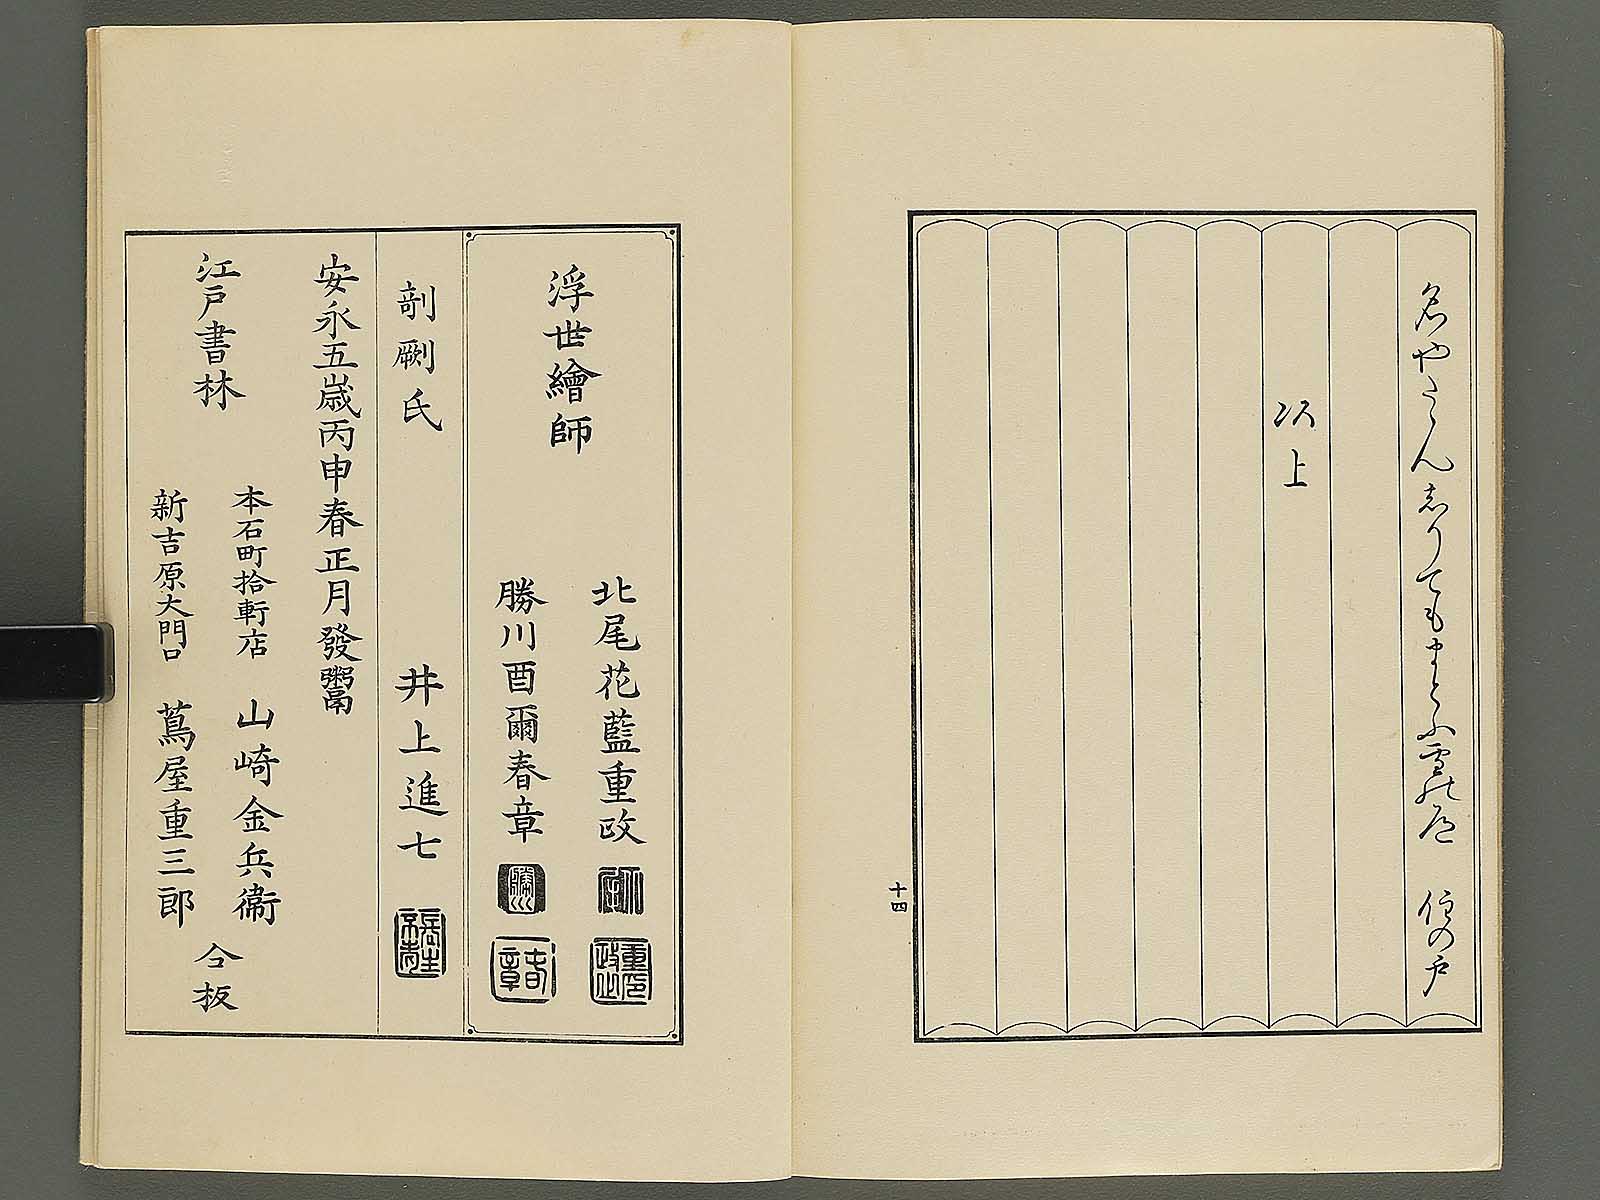 以上
十四
浮世繪師
北尾花藍重政
勝川酉爾春章
剞劂氏
井上進七
安永五歳丙申春正月發鬻
江戸書林
本石町拾軒店 山崎金兵衞
新吉原大門口 蔦屋重三郎
合板